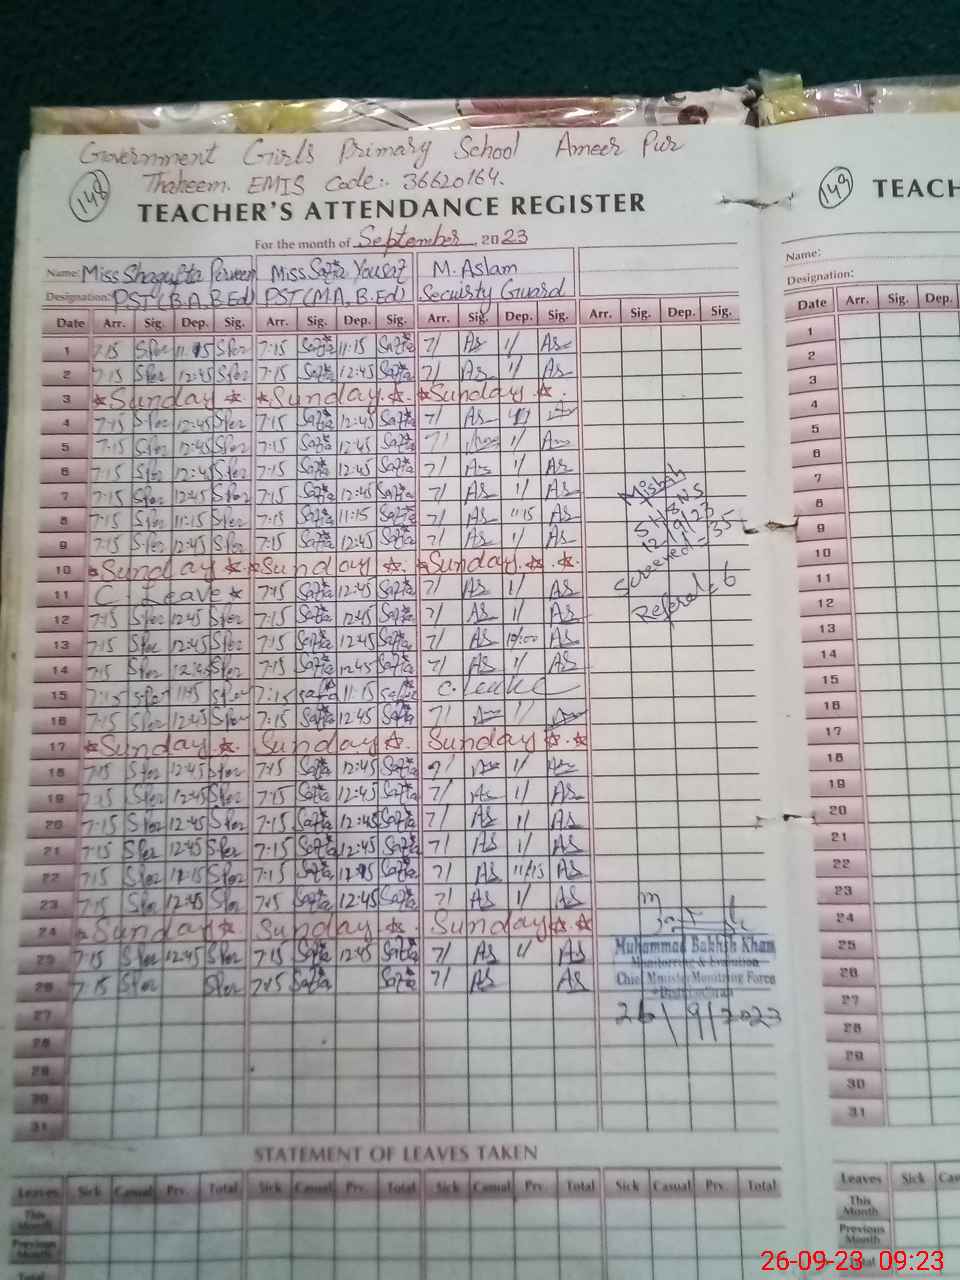 Government Girls Primary School Ameer Pur
Thaheem. EMIS Code:- 36620164.
148
TEACHER'S ATTENDANCE REGISTER
For the month of September 2023
Name: Miss Shagufta Perveen Miss Safia Yousaf M. Aslam
Designation: PST (B.A, B.Ed) PST (M.A, B.Ed) Security Guard
Date Arr. Sig. Dep. Sig. Arr. Sig. Dep. Sig. Arr. Sig. Dep. Sig. Arr. Sig. Dep. Sig.
1 7:15 Sper 11:15 Sper 7:15 Safia 11:15 Safia 7/ As 1/ As
2 7:15 Sper 12:45 Sper 7:15 Safia 12:45 Safia 7/ As 1/ As
3 Sunday Sunday Sunday
4 7:15 Sper 12:45 Sper 7:15 Safia 12:45 Safia 7/ As
5 7:15 Sper 12:45 Sper 7:15 Safia 12:45 Safia 7/ 1/
6 7:15 Sper 12:45 Sper 7:15 Safia 12:45 Safia 7/ As 1/ As
7 7:15 Sper 12:45 Sper 7:15 Safia 12:45 Safia 7/ As 1/ As
8 7:15 Sper 11:15 Sper 7:15 Safia 11:15 Safia 7/ As 11:15 As
9 7:15 Sper 12:45 Sper 7:15 Safia 12:45 Safia 7/ As 1/ As
10 Sunday Sunday Sunday
11 C. Leave 7:15 Safia 12:45 Safia 7/ As 1/ As
12 7:15 Sper 12:45 Sper 7:15 Safia 12:45 Safia 7/ As 1/ As
13 7:15 Sper 12:45 Sper 7:15 Safia 12:45 Safia 7/ As As
14 7:15 Sper 12:45 Sper 7:15 Safia 12:45 Safia 7/ As 1/ As
15 7:15 Sper 11:15 Sper 7:15 Safia 11:15 Safia C. Leave
16 7:15 Sper 12:45 Sper 7:15 Safia 12:45 Safia 7/ 1/
17 Sunday Sunday Sunday
18 7:15 Sper 12:45 Sper 7:15 Safia 12:45 Safia 1/
19 7:15 Sper 12:45 Sper 7:15 Safia 12:45 Safia 7/ As 1/ As
20 7:15 Sper 12:45 Sper 7:15 Safia 12:45 Safia 7/ As 1/ As
21 7:15 Sper 12:45 Sper 7:15 Safia 12:45 Safia 7/ As 1/ As
22 7:15 Sper Sper 7:15 Safia Safia 7/ As 11/15 As
23 7:15 Sper 12:45 Sper 7:15 Safia 12:45 Safia 7/ As 1/ As
24 Sunday Sunday Sunday
25 7:15 Sper 12:45 Sper 7:15 Safia 12:45 Safia 7/ As 1/ As
26 7:15 Sper Sper 7:15 Safia Safia 7/ As As
27
28
29
30
31
Misbah
SH&NS
12/9/23
Screened = 35
Referal = 6
Muhammad Bakhsh Khan
Monitoring & Evaluation
Chief Minister Monitring Force
26/9/2023
STATEMENT OF LEAVES TAKEN
Leaves Sick Casual Prv. Total Sick Casual Prv. Total Sick Casual Prv. Total Sick Casual Prv. Total
This Month
Previous Month
Total
149
TEACH
Name:
Designation:
Date Arr. Sig. Dep.
1
2
3
4
5
6
7
8
9
10
11
12
13
14
15
16
17
18
19
20
21
22
23
24
25
26
27
28
29
30
31
Leaves Sick
This Month
Previous Month
26-09-23 09:23